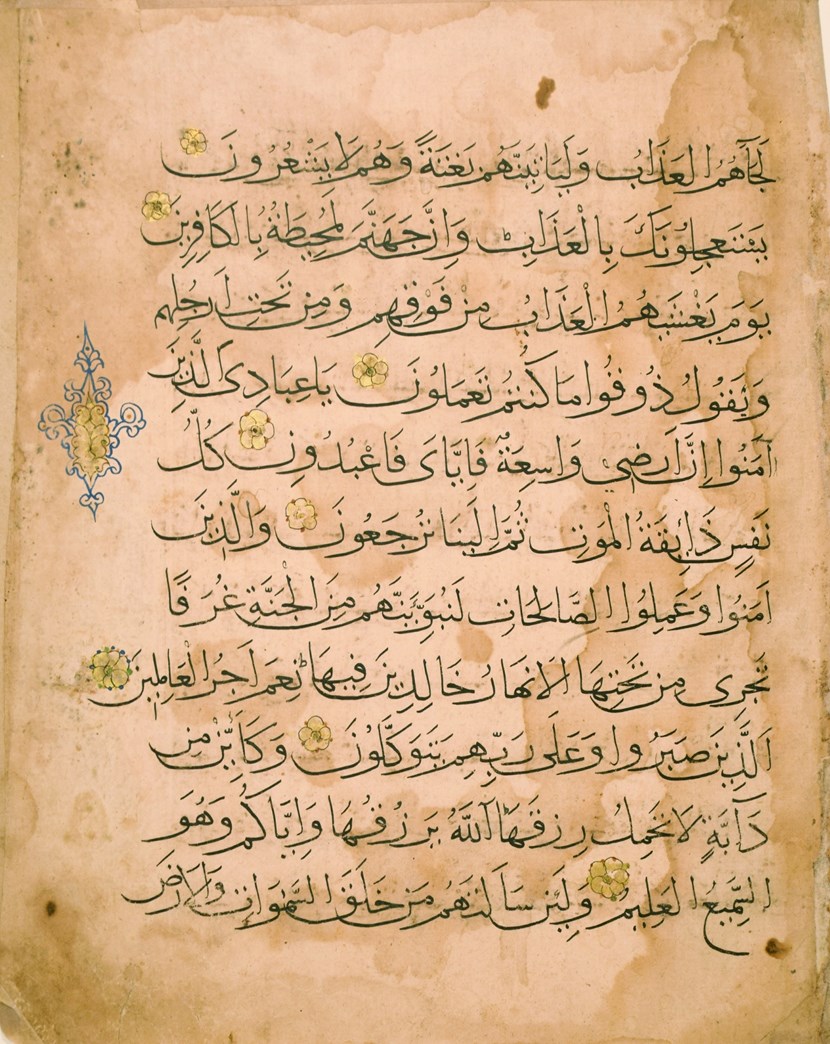 لَجَآءَهُمُ الْعَذَابُ وَلَيَاتِيَنَّهُم بَغْتَةً وَهُمْ لَا يَشْعُرُونَ
يَسْتَعْجِلُونَكَ بِالْعَذَابِ وَاِنَّ جَهَنَّمَ لَمُحِيطَةٌ بِالْكَافِرِينَ
يَوْمَ يَغْشَىٰهُمُ الْعَذَابُ مِنْ فَوْقِهِمْ وَمِنْ تَحْتِ اَرْجُلِهِمْ
وَيَقُولُ ذُوقُوا مَا كُنْتُمْ تَعْمَلُونَ يَاعِبَادِىَ الَّذِينَ
اٰمَنُوا اِنَّ اَرْضِي وَاسِعَةٌ فَاِيَّاىَ فَاعْبُدُونِ كُلُّ
نَفْسٍ ذَايِقَةُ الْمَوْتِ ثُمَّ اِلَيْنَا تُرْجَعُونَ وَالَّذِينَ
اٰمَنُوا وَعَمِلُوا الصَّالِحَاتِ لَنُبَوِّئَنَّهُم مِنَ الْجَنَّةِ غُرَفًا
تَجْرِى مِنْ تَحْتِهَا الْاَنْهَارُ خَالِدِينَ فِيهَا نِعْمَ اَجْرُ الْعَامِلِينَ
الَّذِينَ صَبَرُوا وَعَلَى رَبِّهِمْ يَتَوَكَّلُونَ وَكَاَيِّنْ مِنْ
دَآبَّةٍ لَا تَحْمِلُ رِزْقَهَا اللّٰهُ يَرْزُقُهَا وَاِيَّاكُمْ وَهُوَ
السَّمِيعُ الْعَلِيمُ وَلَئِنْ سَاَلْتَهُمْ مَنْ خَلَقَ السَّمٰوَاتِ وَالْاَرْضَ